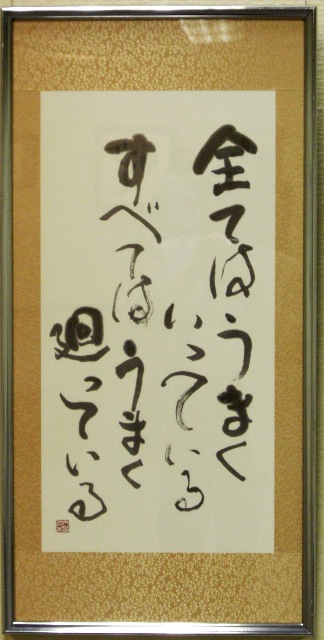 全てはうまく
いっている
すべてはうまく
廻っている